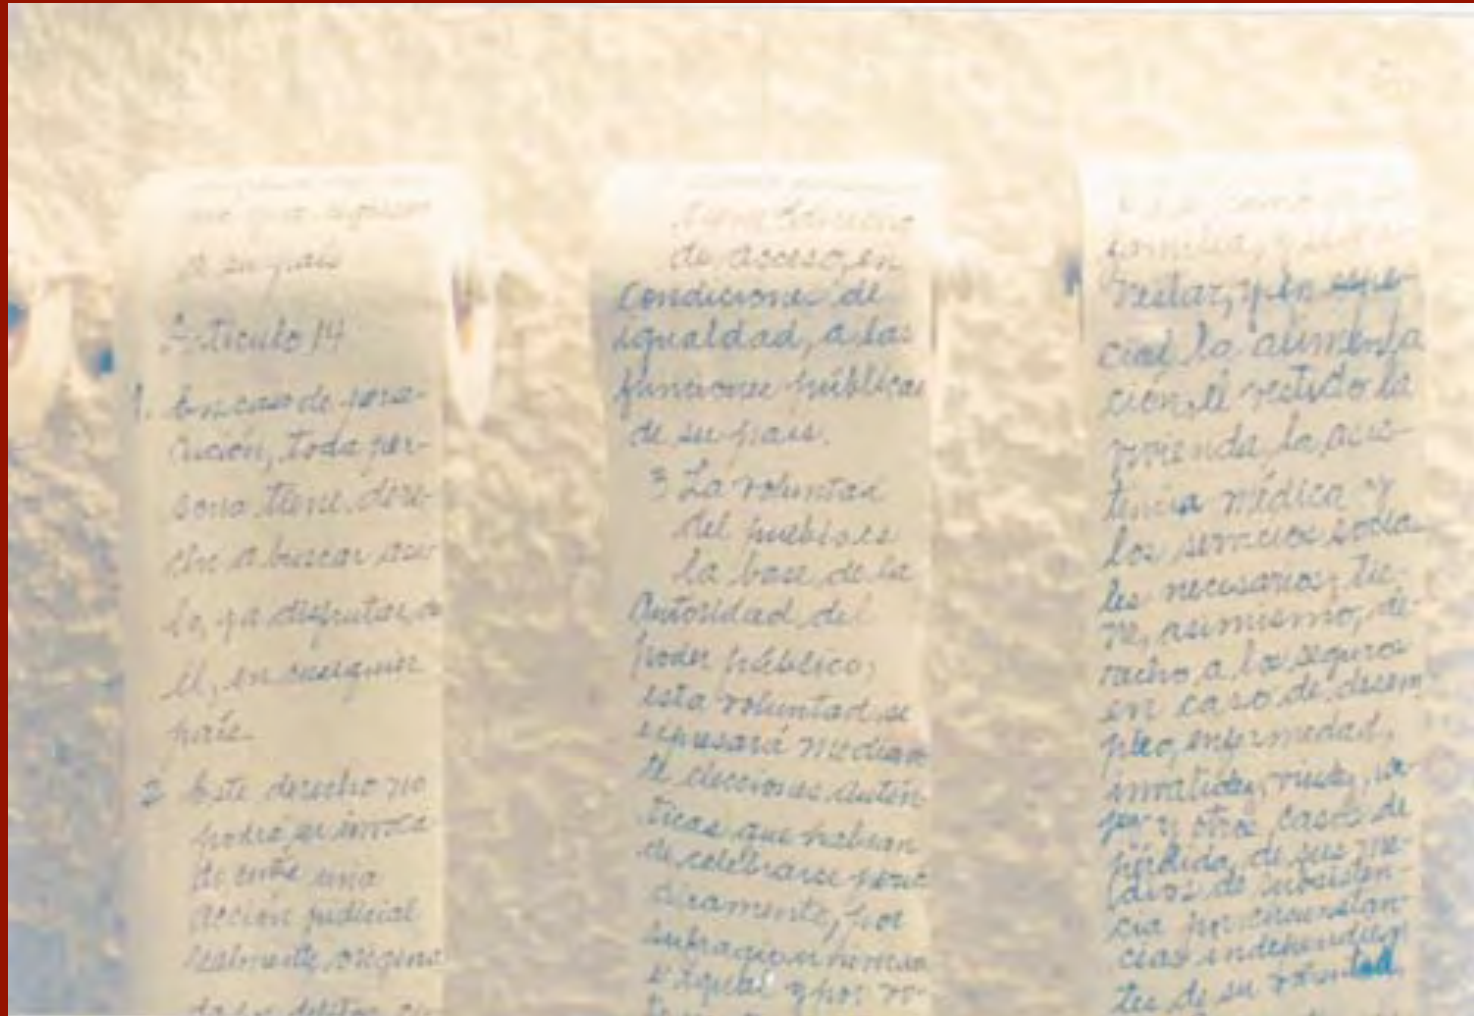 a su país
Artículo 14
1. En caso de perse-
cución, toda per-
sona tiene dere-
cho a buscar asi-
lo, y a disfrutar de
él, en cualquier
país.
2 Este derecho no
podrá ser invoca
do contra una
acción judicial
realmente origina
tiene derecho
de acceso, en
Condiciones de
igualdad, a las
funciones públicas
de su país.
3 La voluntad
del pueblo es
la base de la
Autoridad del
poder público;
esta voluntad se
expresará median
te elecciones autén
ticas que habran
de celebrarse perió
dicamente, por
sufragio universal
e igual y por vo-
familia,
nestar, y en espe-
cial la alimenta
ción, el vestido la
vivienda, la asis-
tencia médica y
los servicios socia
les necesarios; tie-
ne, asimismo, de-
recho a los seguros
en caso de desem-
pleo, enfermedad,
invalidez, viudez, ve-
jez y otros casos de
pérdida de sus me-
dios de subsisten-
cia por circunstan
cias independien
tes de su voluntad.